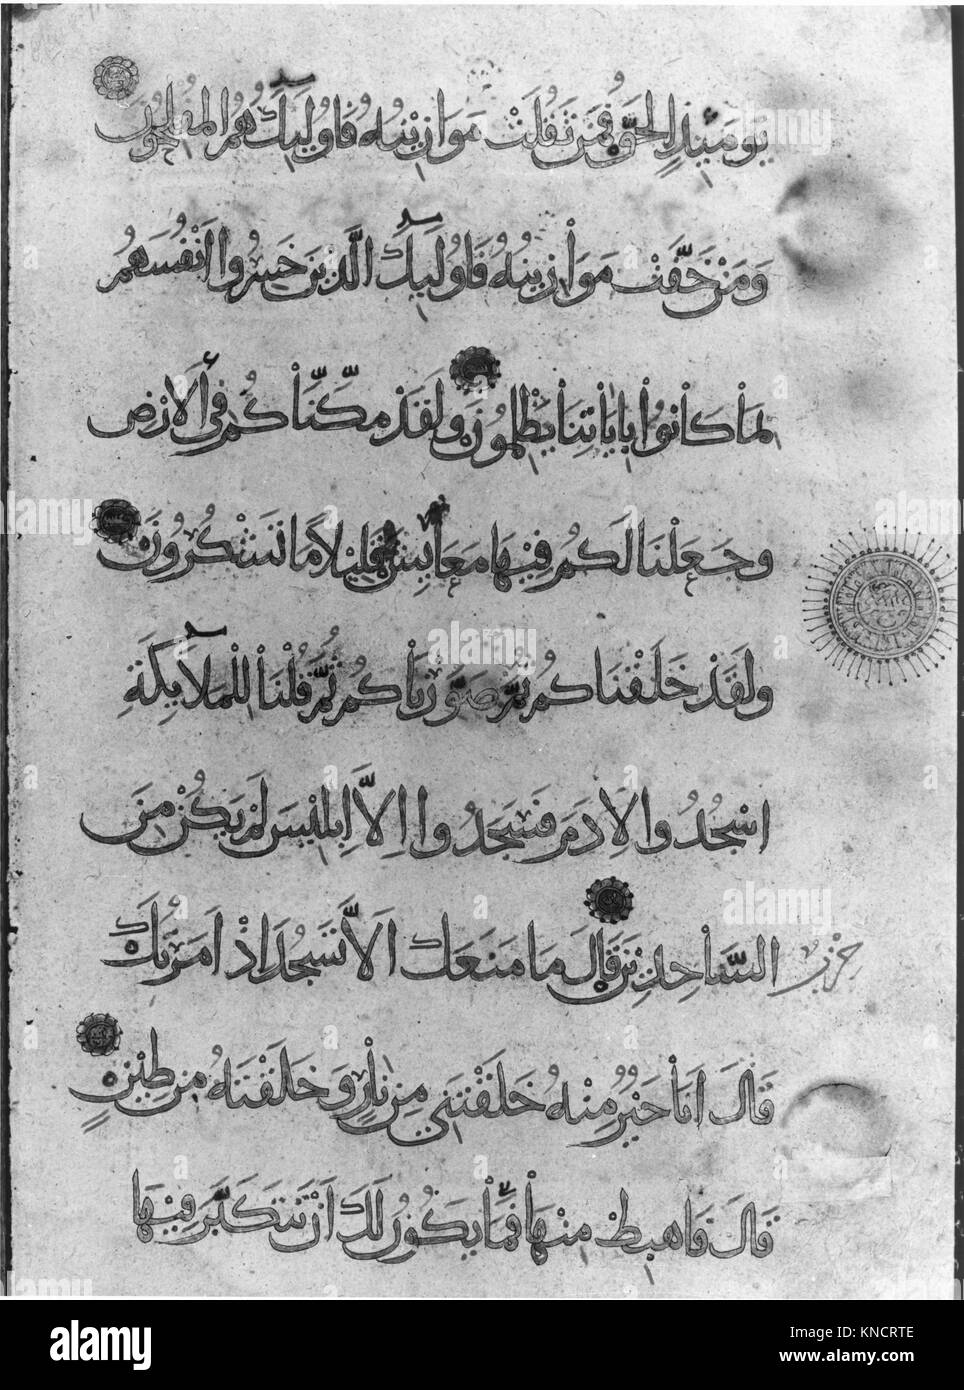 يَوْمَئِذٍ الْحَقُّ فَمَنْ ثَقُلَتْ مَوَازِينُهُ فَاُولَئِكَ هُمُ الْمُفْلِحُونَ
وَمَنْ خَفَّتْ مَوَازِينُهُ فَاُولَئِكَ الَّذِينَ خَسِرُوا اَنْفُسَهُمْ
بِمَا كَانُوا بِايَاتِنَا يَظْلِمُونَ وَلَقَدْ مَكَّنَّاكُمْ فِي الْاَرْضِ
وَجَعَلْنَا لَكُمْ فِيهَا مَعَايِشَ قَلِيلًا مَا تَشْكُرُونَ
وَلَقَدْ خَلَقْنَاكُمْ ثُمَّ صَوَّرْنَاكُمْ ثُمَّ قُلْنَا لِلْمَلَائِكَةِ
اسْجُدُوا لِادَمَ فَسَجَدُوا اِلَّا اِبْلِيسَ لَمْ يَكُنْ مِنَ
السَّاجِدِينَ قَالَ مَا مَنَعَكَ اَلَّا تَسْجُدَ اِذْ اَمَرْتُكَ
حزب
قَالَ اَنَا خَيْرٌ مِنْهُ خَلَقْتَنِي مِنْ نَارٍ وَخَلَقْتَهُ مِنْ طِينٍ
قَالَ فَاهْبِطْ مِنْهَا فَمَا يَكُونُ لَكَ اَنْ تَتَكَبَّرَ فِيهَا
alamy
Image ID: KNCRTE
www.alamy.com